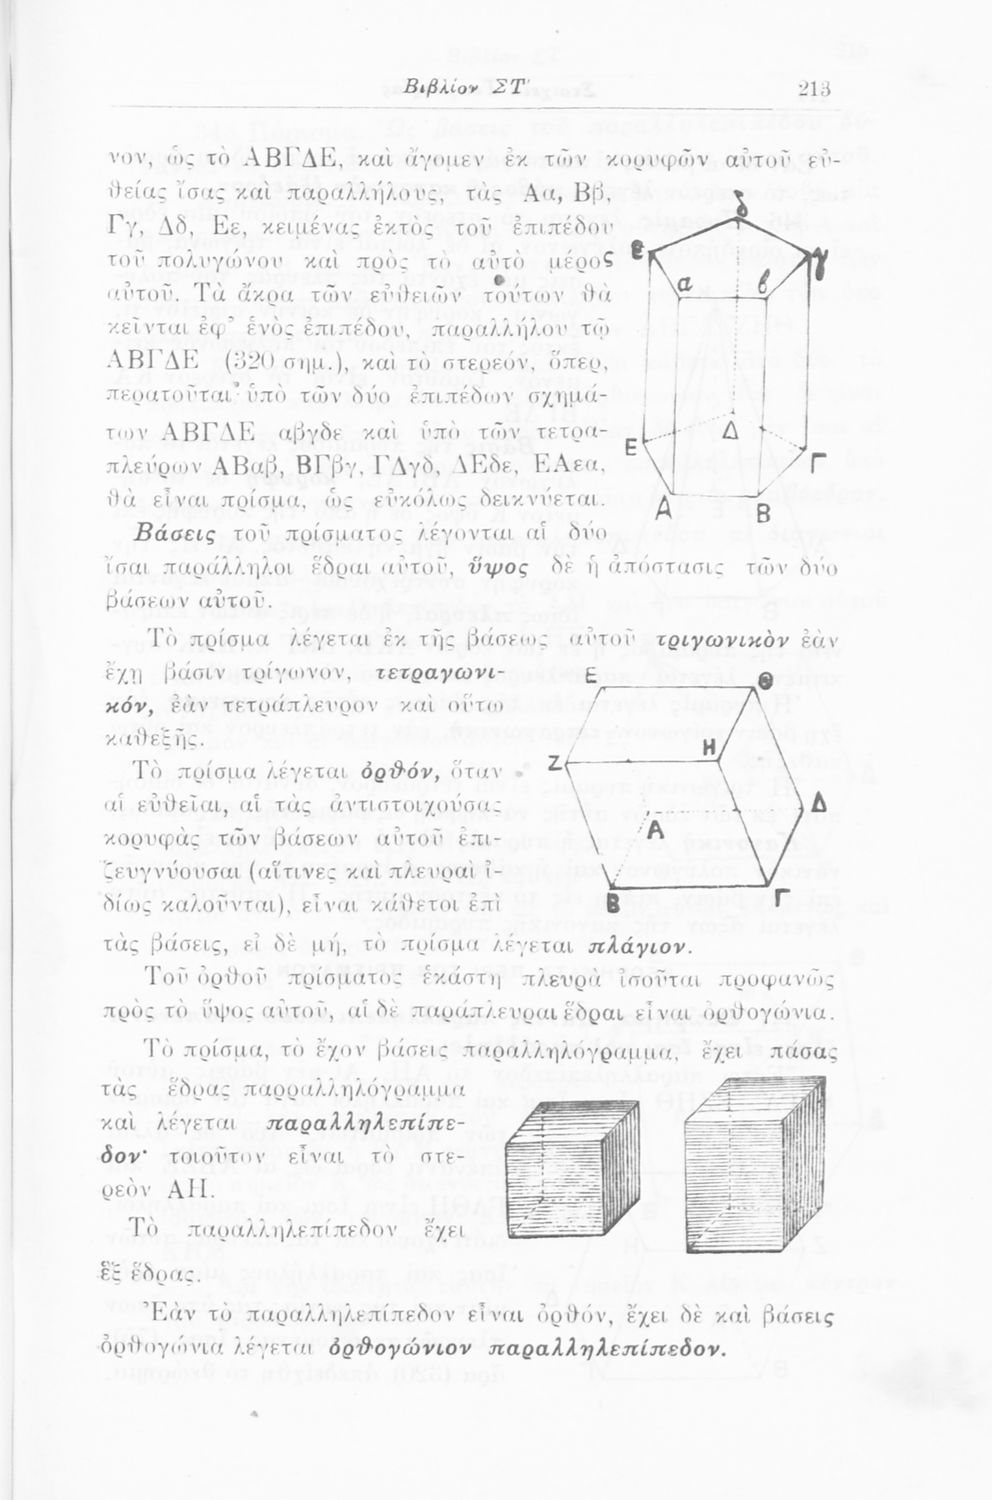 Βιβλίον ΣΤ΄ 213
νον, ὡς τὸ ΑΒΓΔΕ, καὶ ἄγομεν ἐκ τῶν κορυφῶν αὐτοῦ εὐ-
θείας ἴσας καὶ παραλλήλους, τὰς Αα, Ββ,
Γγ, Δδ, Εε, κειμένας ἐκτὸς τοῦ ἐπιπέδου
τοῦ πολυγώνου καὶ πρὸς τὸ αὐτὸ μέρος
αὐτοῦ. Τὰ ἄκρα τῶν εὐθειῶν τούτων θὰ
κεῖνται ἐφ' ἑνὸς ἐπιπέδου, παραλλήλου τῷ
ΑΒΓΔΕ (320 σημ.), καὶ τὸ στερεόν, ὅπερ,
περατοῦται ὑπὸ τῶν δύο ἐπιπέδων σχημά-
των ΑΒΓΔΕ αβγδε καὶ ὑπὸ τῶν τετρα-
πλεύρων ΑΒαβ, ΒΓβγ, ΓΔγδ, ΔΕδε, ΕΑεα,
θὰ εἶναι πρίσμα, ὡς εὐκόλως δεικνύεται.
δ
ε
γ
α
β
Ε
Δ
Γ
Α
Β
Βάσεις τοῦ πρίσματος λέγονται αἱ δύο
ἴσαι παράλληλοι ἕδραι αὐτοῦ, ὕψος δὲ ἡ ἀπόστασις τῶν δύο
βάσεων αὐτοῦ.
Τὸ πρίσμα λέγεται ἐκ τῆς βάσεως αὐτοῦ τριγωνικὸν ἐὰν
ἔχῃ βάσιν τρίγωνον, τετραγωνι-
κόν, ἐὰν τετράπλευρον καὶ οὕτω
καθεξῆς.
Τὸ πρίσμα λέγεται ὀρθόν, ὅταν
αἱ εὐθεῖαι, αἱ τὰς ἀντιστοιχούσας
κορυφὰς τῶν βάσεων αὐτοῦ ἐπι-
ζευγνύουσαι (αἵτινες καὶ πλευραὶ ἰ-
δίως καλοῦνται), εἶναι κάθετοι ἐπὶ
τὰς βάσεις, εἰ δὲ μή, τὸ πρίσμα λέγεται πλάγιον.
Ε
Θ
Η
Ζ
Δ
Α
Β
Γ
Τοῦ ὀρθοῦ πρίσματος ἑκάστη πλευρὰ ἰσοῦται προφανῶς
πρὸς τὸ ὕψος αὐτοῦ, αἱ δὲ παράπλευραι ἕδραι εἶναι ὀρθογώνια.
Τὸ πρίσμα, τὸ ἔχον βάσεις παραλληλόγραμμα, ἔχει πάσας
τὰς ἕδρας παρραλληλόγραμμα
καὶ λέγεται παραλληλεπίπε-
δον· τοιοῦτον εἶναι τὸ στε-
ρεὸν ΑΗ.
Τὸ παραλληλεπίπεδον ἔχει
ἓξ ἕδρας.
Ἐὰν τὸ παραλληλεπίπεδον εἶναι ὀρθόν, ἔχει δὲ καὶ βάσεις
ὀρθογώνια λέγεται ὀρθογώνιον παραλληλεπίπεδον.